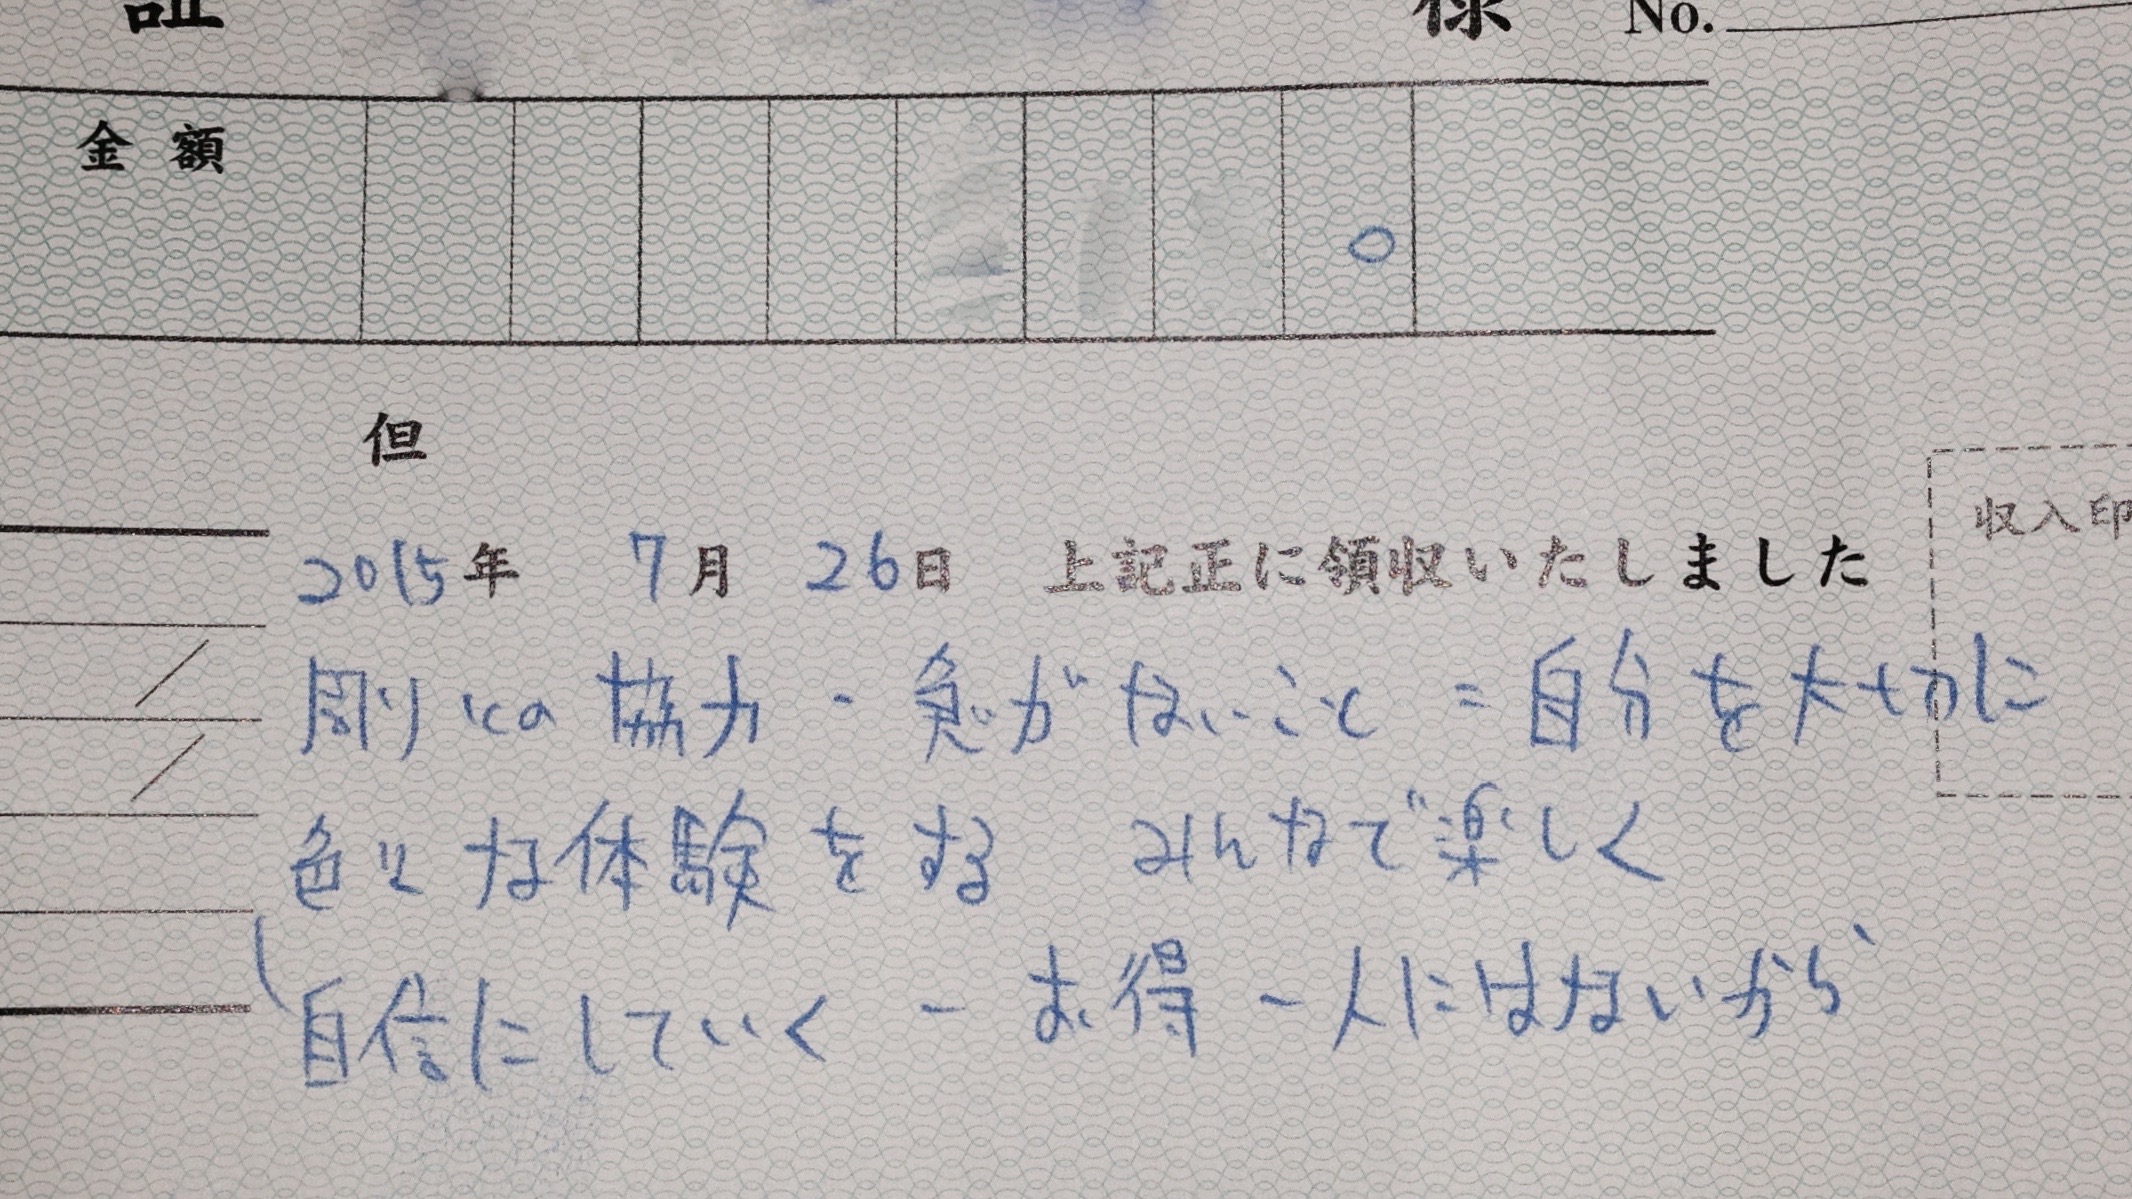 証 様 No.
金額 0
但
2015年 7月 26日 上記正に領収いたしました
収入印
周りの協力・急がないこと=自分を大切に
色々な体験をする みんなで楽しく
自信にしていく - お得 - 人にはないから